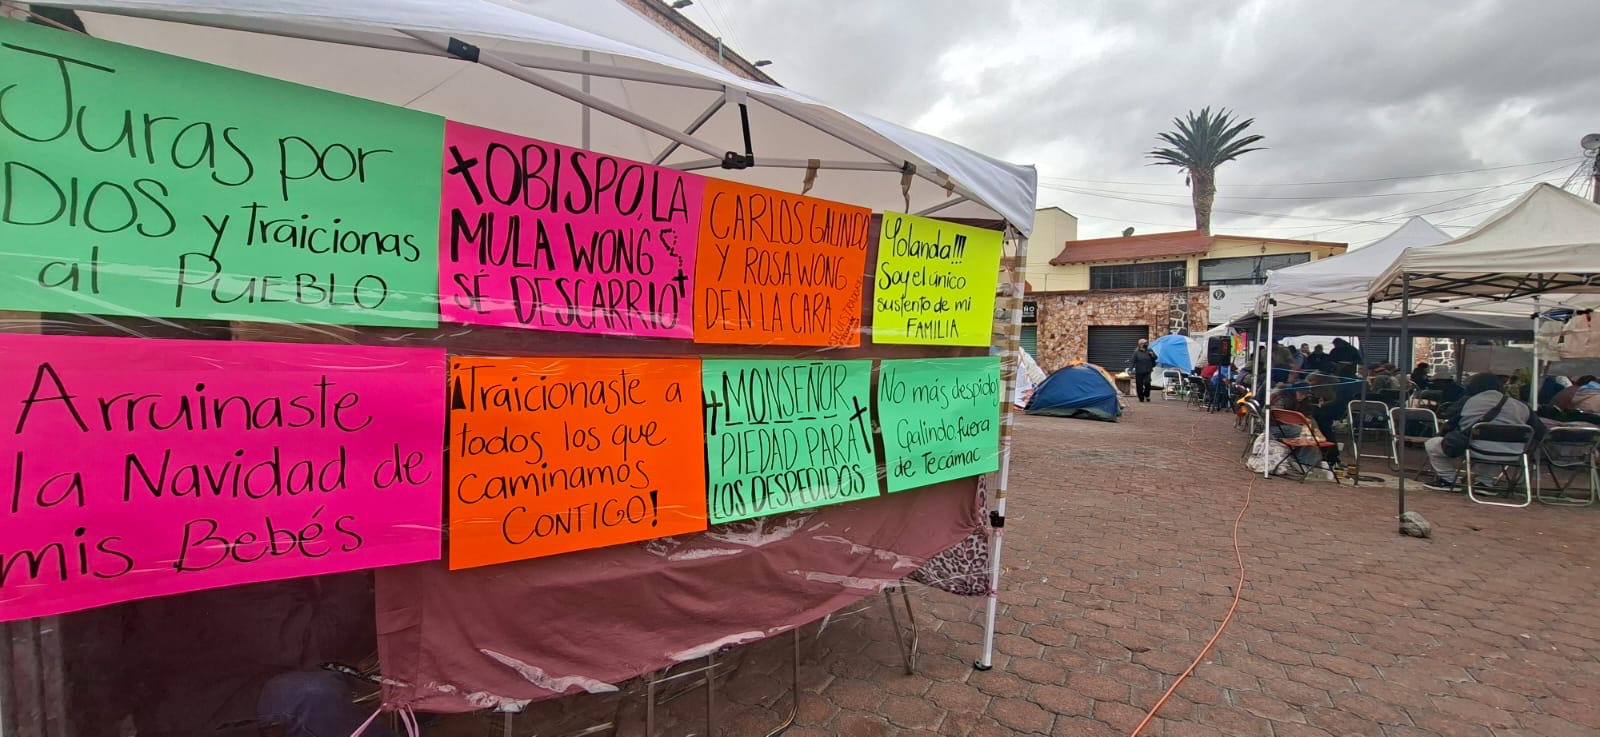 Juras por
DIOS y traicionas
al PUEBLO
OBISPO, LA
MULA WONG
SÉ DESCARRIO
CARLOS GALINDO
Y ROSA WONG
DEN LA CARA
Yolanda!!!
Soy el único
sustento de mi
FAMILIA
Arruinaste
la Navidad de
mis Bebés
¡Traicionaste a
todos los que
caminamos
CONTIGO!
MONSEÑOR
PIEDAD PARA
LOS DESPEDIDOS
No más despidos
Galindo, fuera
de Tecámac